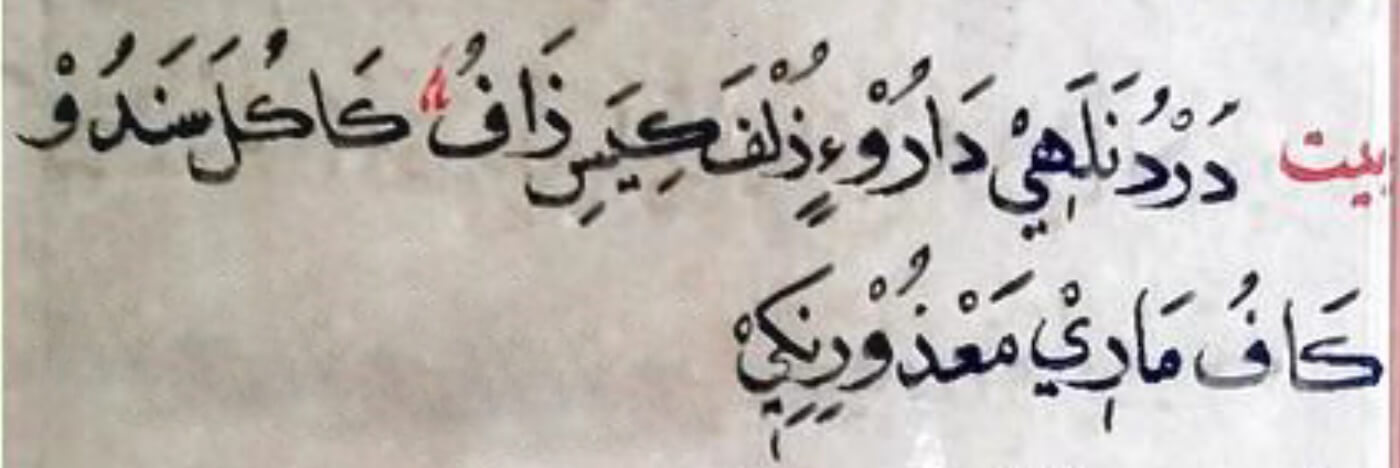 بيت دَرْدُنَلَهِيْ دَارُوْءٍ ذُلْفَ كِيَسِ ذَافُ كَاكُلَ سَنَدُوْ
كَافُ مَارِيْ مَعْذُوْرِنِكِيْ